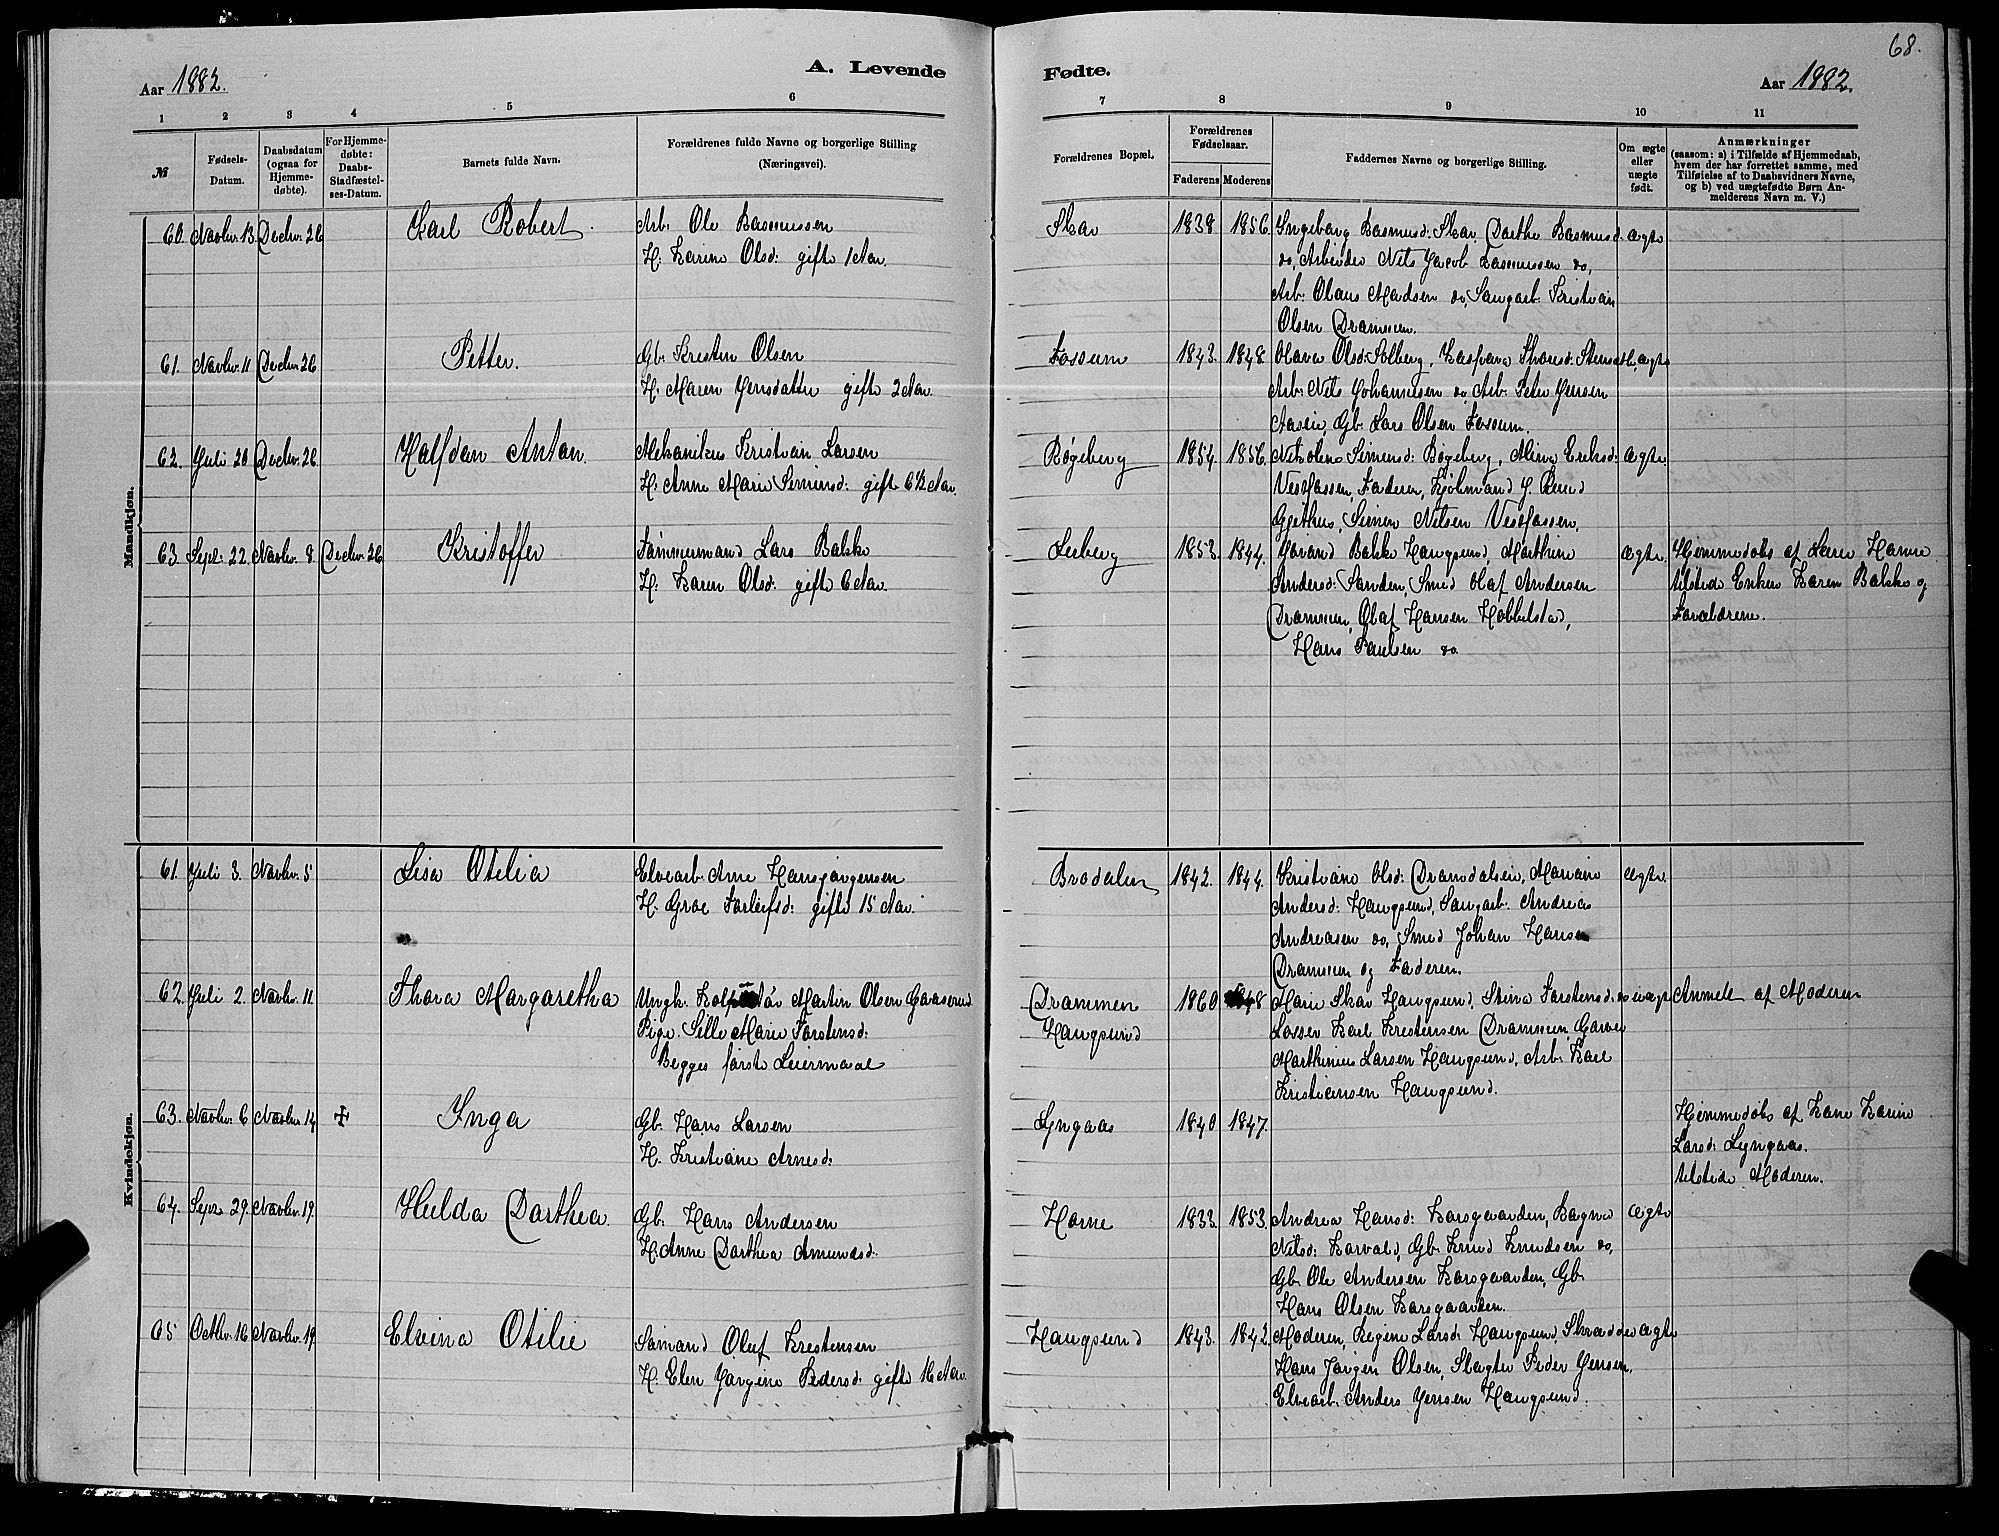 68.
Aar 1882.
A. Levende
Fødte.
Aar 1882.
1 2 3 4 5 6 7 8 9 10 11
№
Fødsels-Datum.
Daabsdatum (ogsaa for Hjemme-døbte).
For Hjemme-døbte: Daabs-Stadfæstel-ses-Datum.
Barnets fulde Navn.
Forældrenes fulde Navne og borgerlige Stilling
(Næringsvei).
Forældrenes Bopæl.
Forældrenes Fødselsaar.
Faderens Moderens
Faddernes Navne og borgerlige Stilling.
Om ægte eller uægte født.
Anmærkninger
(saasom: a) i Tilfælde af Hjemmedaab,
hvem der har forrettet samme, med
Tilføielse af to Daabsvidners Navne,
og b) ved uægtefødte Børn An-
melderens Navn m. V.)
Mandkjøn.
60. Novbr. 13 Decbr. 26 Carl Robert. Arb. Ole Rasmussen Skar 1838 1856 Ingeborg Rasmusd. Skar, Dorthe Rasmusd. ægte
H. Karine Olsd. gifte 1 Aar. do, Arbeider Nils Jacob Rasmussen do,
Arb. Olaus Madsen do, Saugarb. Kristian
Olsen Drammen.
61. Novbr. 11 Decbr. 26 Petter. Gb. Kristen Olsen Fossum 1843. 1848. Olava Olsd. Solberg, Kaspara ægte
H. Maren Jensdatter gifte 2 Aar. Arb. Nils Johannesen do, Arb. Peter Jensen
Aasen, Gb. Lars Olsen Fossum.
62. Juli 20 Decbr. 26 Halfdan Anton. Mekanikus Kristian Larsen Bøgeberg 1854. 1856. Nikoline Simensd. Bøgeberg, Mina Eriksd. ægte.
H. Anne Marie Simensd. gifte 6½ Aar. Vestfossen, Faderen, Kjøbmand J. Ruud
Gjethus, Simen Nilsen Vestfossen.
63 Sept. 22. Novbr. 8 Decbr. 26 Kristoffer Tømmermand Lars Bakke Leeberg 1853. 1844. Jørand Bakke Haugsund, Marthine ægte. Hjemmedøbt af Lærer Horne
H. Karen Olsd. gifte 6 Aar. Andersd. Sanden, Smed Olaf Andersen tilstede Enken Karen Bakke og
Drammen, Olaf Hansen Hobbelstad, Forældrene.
Hans Paulsen do.
Kvindekjøn.
61. Juli 3. Novbr. 5 Lisa Otilia Elvearb. Arne Hansjørgensen Brodalen 1842. 1844. Kristiane Olsd. Dramdalsein, Mariane ægte.
H. Groe Torleifsd. gifte 15 Aar. Andersd. Haugsund, Saugarb. Andreas
Andreasen do, Smed Johan Hansen
Drammen og Faderen.
62. Juli 2. Novbr. 11 Thora Margaretha Ungk. Martin Olsen Gaaserud Drammen 1860 1848 Marie Skar Haugsund, Stina Torstensd. do uægte Anmeldt af Moderen
Pige Sille Marie Torstensd. Haugsund Losser Karl Kristensen Drammen, Garver
Begges første Leiermaal Marthinius Larsen Haugsund, Arb. Karl
Kristiansen Haugsund.
63. Novbr. 6 Novbr. 14 ✝ Inga Gb. Hans Larsen Lyngaas 1840 1847. Hjemmedøbt af Kone Karine
H. Kristiane Arnesd. Larsd. Lyngaas.
tilstede Moderen.
64. Sept. 29. Novbr. 19. Hulda Dorthea. Gb. Hans Andersen Horne 1833. 1853. Andrea Hansd. Korsgaarden, Ragna ægte
H. Anne Dorthea Amundsd. Nilsd. Horvald, Gb. Knud Knudsen do,
Gb. Ole Andersen Korsgaarden, Gb.
Hans Olsen Korsgaarden.
65 Octbr. 16 Novbr. 19 Elvina Otilie Sømand Oluf Kristensen Haugsund 1843. 1842. Moderen, Regine Larsd. Haugsund, Skrædder ægte
H. Elen Jørgine Pedersd. gifte 16 Aar. Hans Jørgen Olsen, Slagter Peder Jensen,
Elvearb. Anders Jensen Haugsund.